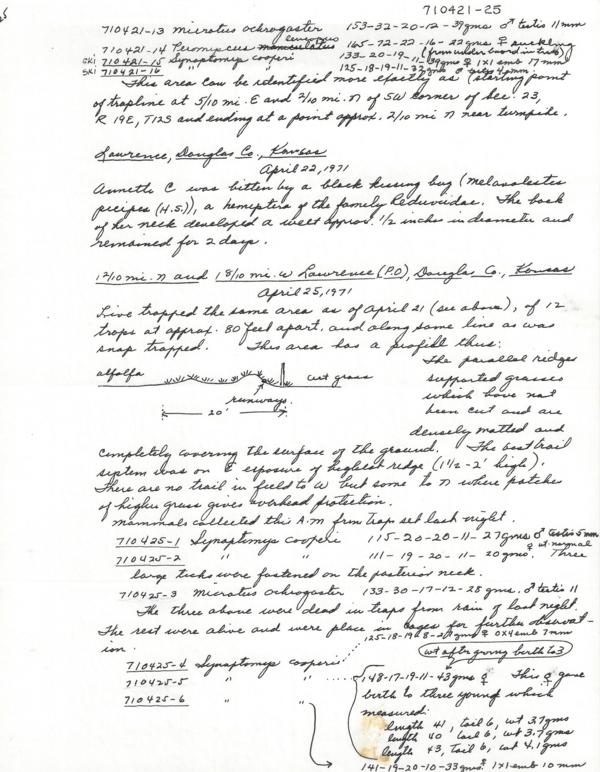 710421-25
710421-13 Microtus ochrogaster 153-32-20-12-39gms ♂ testis 11mm
leucopus
710421-14 Peromyscus maniculatus 165-72-22-16-22gms ♀ suckling
(from under board in tub)
SKI 710421-15 Synaptomys cooperi 133-20-19-11-39gms ♀ 1x1 emb 17mm
SKI 710421-16 " " 125-18-19-11-27gms ♂ testis 4mm.
This area can be identified more exactly as (starting point
of trapline at 5/10 mi. E and 2/10 mi. N of SW corner of Sec. 23,
R 19E, T12S and ending at a point approx. 2/10 mi N near turnpike.
Lawrence, Douglas Co., Kansas
April 22, 1971
Annette C was bitten by a black kissing bug (Melanolestes
picipes (H.S.)), a hemiptera of the family Reduviidae. The back
of her neck developed a welt approx. 1/2 inches in diameter and
remained for 2 days.
1 2/10 mi. N and 1 8/10 mi. W Lawrence (P.O), Douglas Co., Kansas
April 25, 1971
Live trapped the same area as of April 21 (see above), of 12
traps at approx. 80 feet apart, and along same line as was
snap trapped. This area has a profill thus:
alfalfa
cut grass
runways.
20'
The parallel ridges
supported grasses
which have not
been cut and are
densely matted and
completely covering the surface of the ground. The best trail
system was on E exposure of highest ridge (1 1/2 - 2' high).
There are no trail in field to W but some to N where patches
of higher grass gives overhead protection.
Mammals collected this A.M from traps set last night.
710425-1 Synaptomys cooperi 115-20-20-11-27gms ♂ testis 5mm
710425-2 " " 111-19-20-11-20gms. ♀ ut. normal Three
large ticks were fastened on the posterior neck.
710425-3 Microtus ochrogaster 133-30-17-12-28 gms. ♂ testis 11
The three above were dead in traps from rain of last night.
The rest were alive and were place in cages for further observat-
ion.
710425-4 Synaptomys cooperi 125-18-19 ♀ 0x4 emb 7mm
wt after giving birth to 3
710425-5 " " 148-17-19-11-43gms ♀ This ♀ gave
birth to three young which
measured:
length 41, tail 6, wt 3.7gms
length 40 tail 6, wt 3.7gms
length 43, tail 6, wt 4.1gms
710425-6 " " 141-19-20-10-33gms. ♀ 1x1 emb 10mm